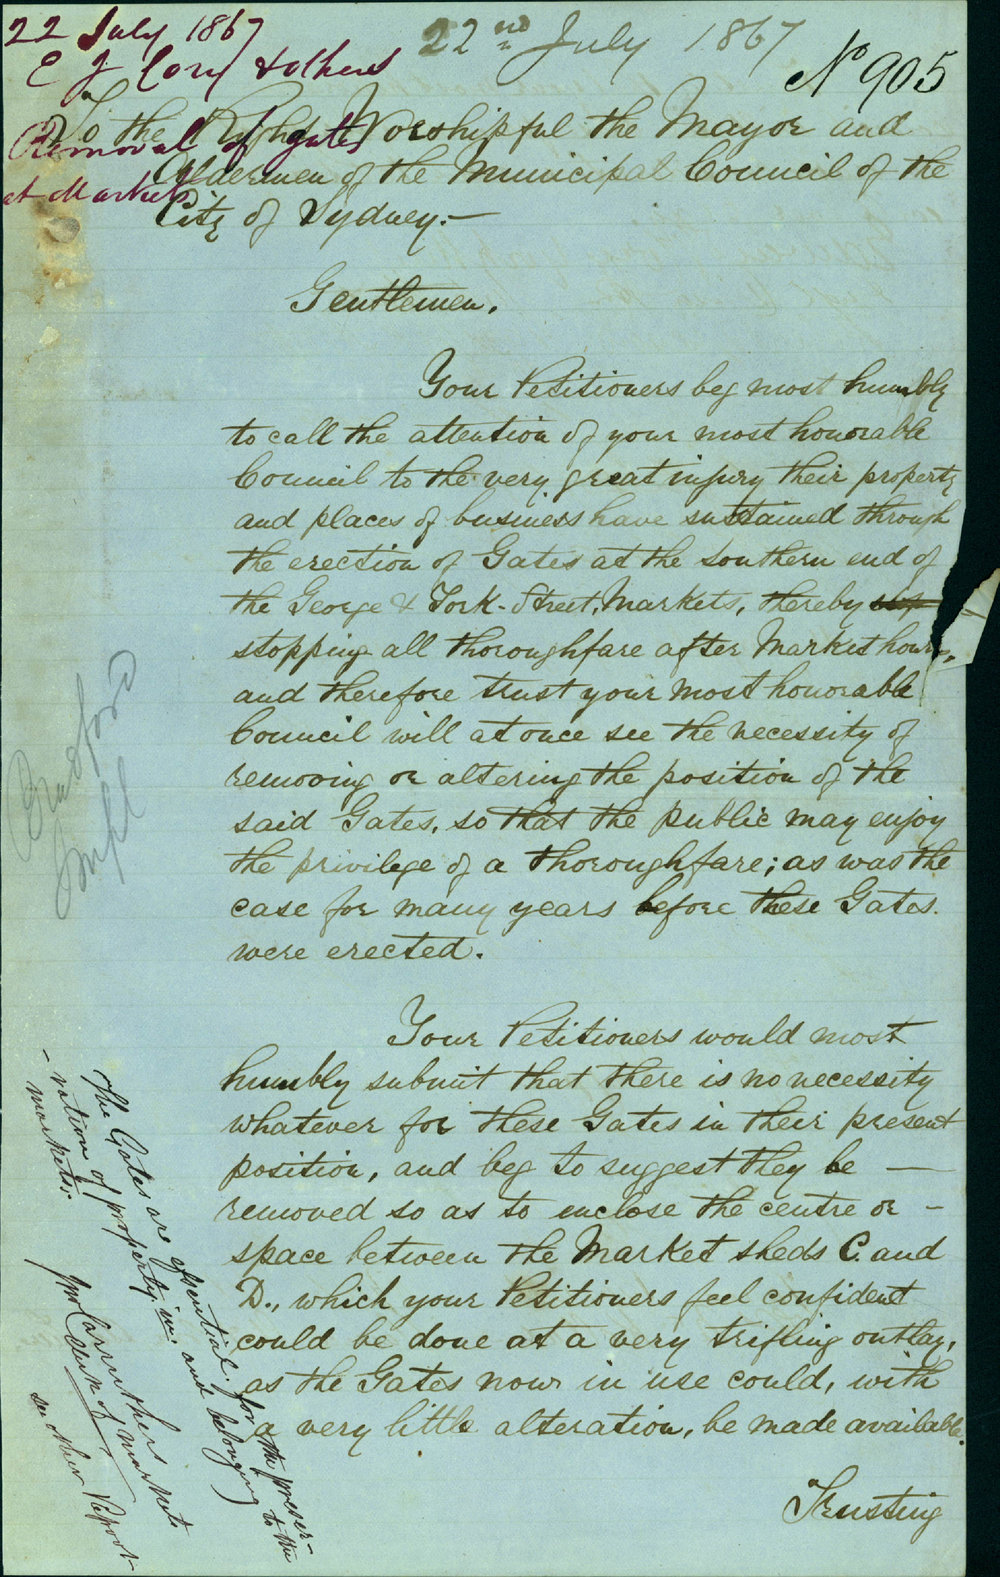 22 July 1867
E J Cory & others
Removal of gates
at Markets
22nd July 1867
No 905
To the Right Worshipful the Mayor and
Aldermen of the Municipal Council of the
City of Sydney.—
Gentlemen.
Your Petitioners beg most humbly
to call the attention of your most honorable
Council to the very great injury their property
and places of business have sustained through
the erection of Gates at the Southern end of
the George & York-Street, Markets, thereby stop
stopping all thoroughfare after Market hours,
and therefore trust your most honorable
Council will at once see the necessity of
removing or altering the position of the
said Gates, so that the public may enjoy
the privilege of a thoroughfare; as was the
case for many years before these Gates.
were erected.
Your Petitioners would most
humbly submit that there is no necessity
whatever for these Gates in their present
position, and beg to suggest they be —
removed so as to enclose the centre or –
space between the Market sheds C. and
D., which your Petitioners feel confident
could be done at a very trifling outlay,
as the Gates now in use could, with
a very little alteration, be made available.
Trusting
The Gates are essential for the preser-
-vation of property in: and belonging to the
-markets:
Jno Carruthers
Clerk of markets
see other Report